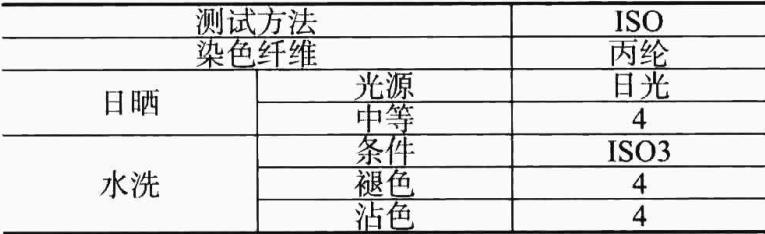 测试方法 ISO
染色纤维 丙纶
日晒 光源 日光
中等 4
水洗 条件 ISO3
褪色 4
沾色 4